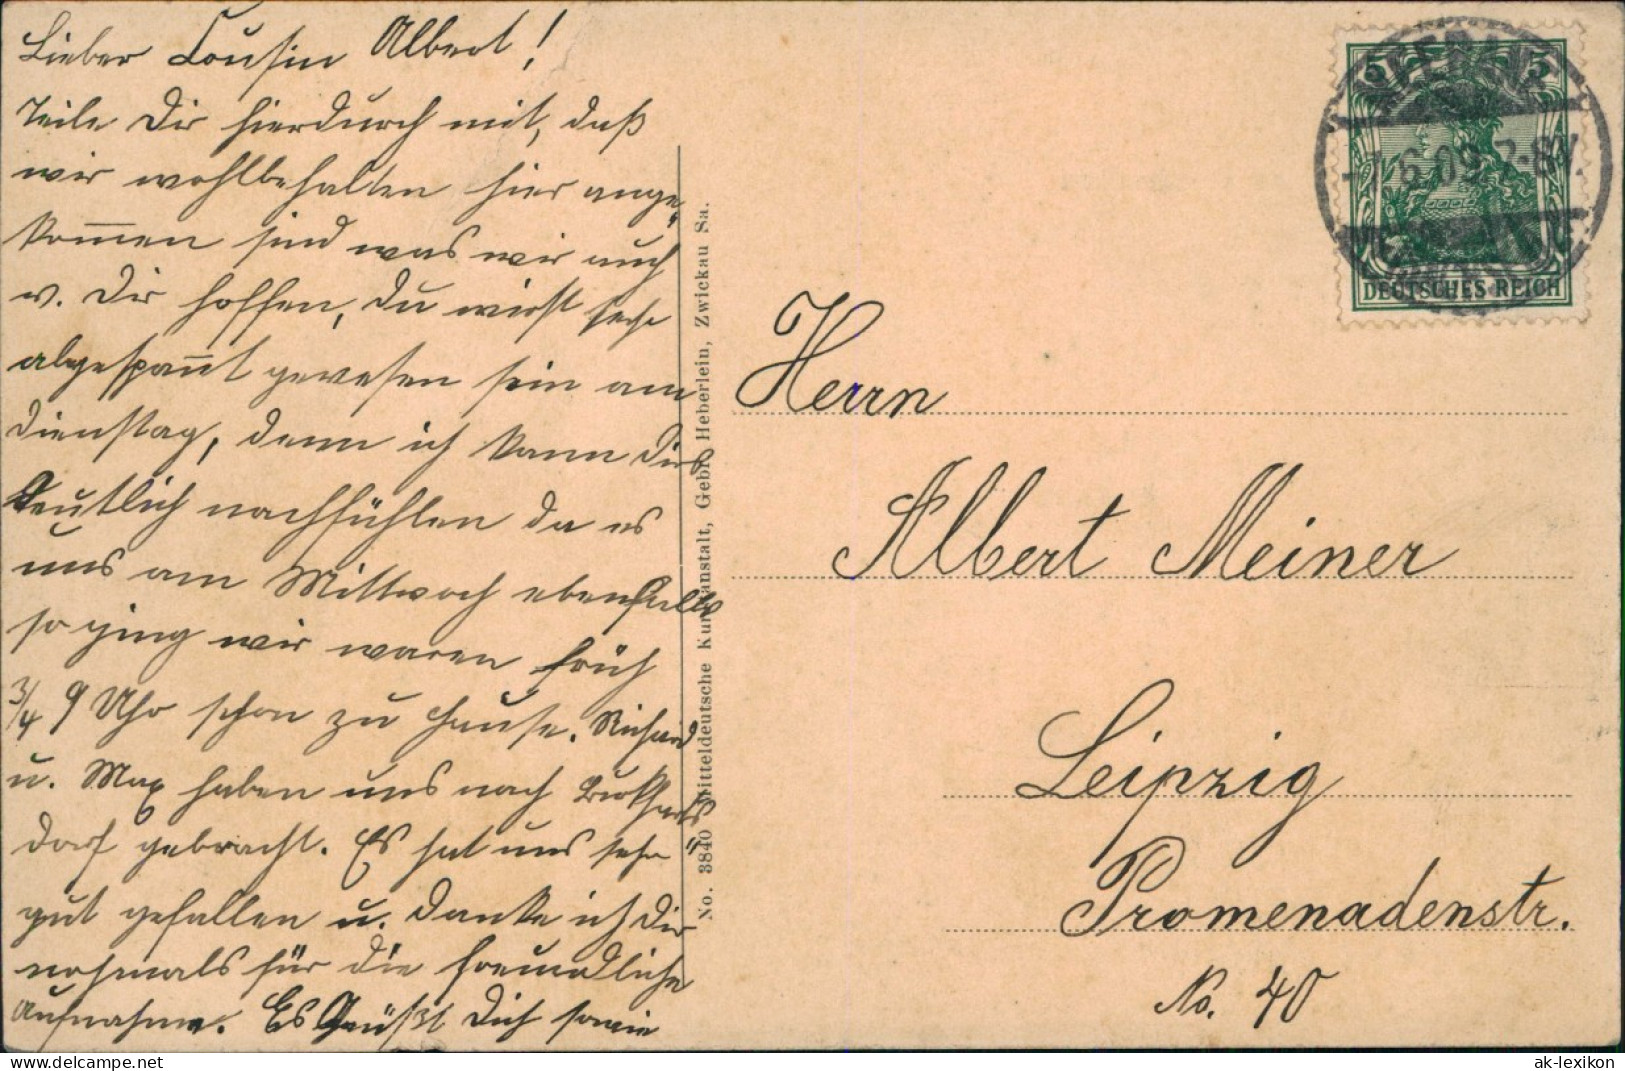 Lieber Cousin Albert!
Teile Dir hierdurch mit, daß
wir wohlbehalten hier ange-
kom̄en sind was wir auch
v. Dir hoffen, Du wirst sehr
abgespan̄t gewesen sein am
Dienstag, denn ich kann dies
deutlich nachfühlen da es
uns am Mittwoch ebenfalls
so ging wir waren früh
3/4 9 Uhr schon zu Hause. Richard
u. Max haben uns nach
dorf gebracht. Es hat uns sehr
gut gefallen u. danke ich Dir
nochmals für die freundliche
Aufnahme. Es Grüßt Dich sowie
No. 3840 Mitteldeutsche Kunstanstalt, Gebr. Heberlein, Zwickau Sa.
5 5
7.6.09. 7-8V.
DEUTSCHES REICH
Herrn
Albert Meiner
Leipzig
Promenadenstr.
No. 40
www.delcampe.net
ak-lexikon